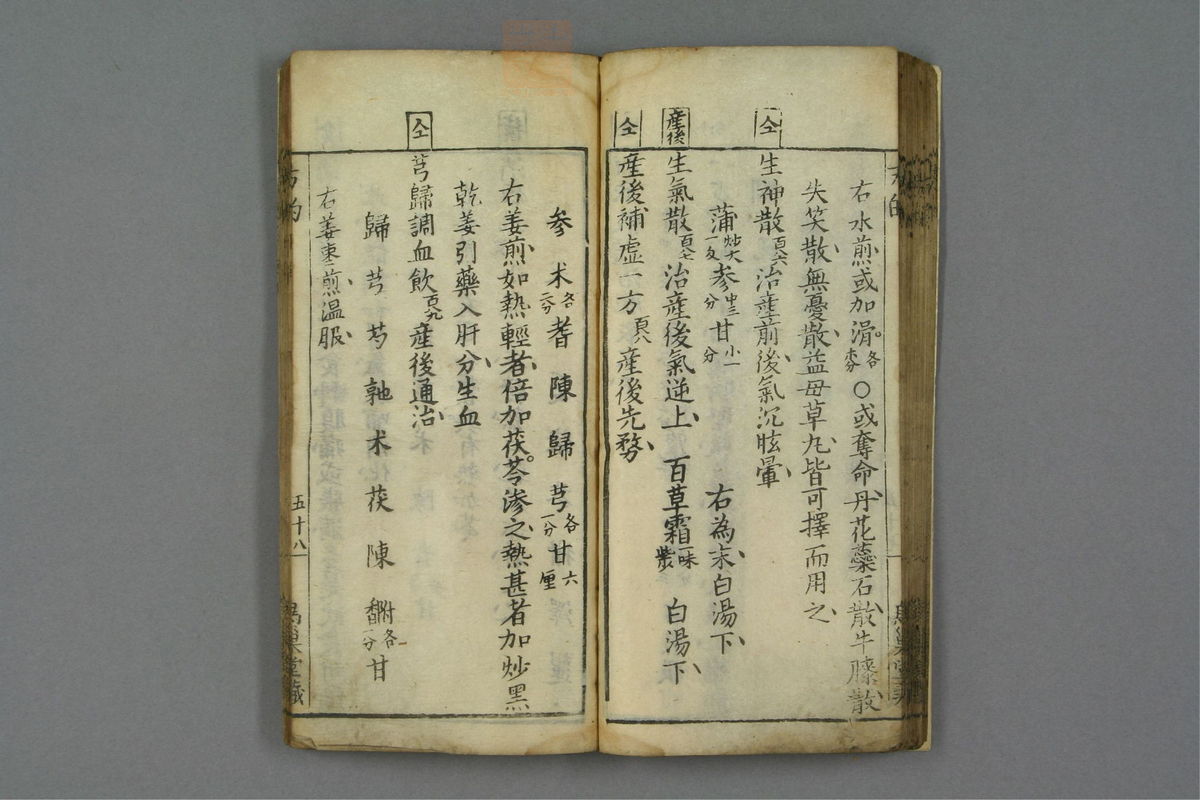 右水煎或加滑各
〇或奪命丹花蘂石散牛膝散
失笑散無憂散益母草丸皆可擇而用之
仝
生神散百六治産前後氣沉眩暈
蒲炒大一 参中三分 甘小一分 右為末白湯下
産後
生氣散百七治産後氣逆上 百草霜一味 白湯下
仝
産後補虚一方百八産後先務
参 术各二分 耆 陳 歸 芎各一分 甘六厘
右姜煎如熱輕者倍加茯苓滲之熱甚者加炒黑
乾姜引藥入肝分生血
仝
芎歸調血飲百九産後通治
歸 芎 芍 术 茯 陳 附各一分 甘
右姜棗煎温服
方的
五十八
巢堂藏